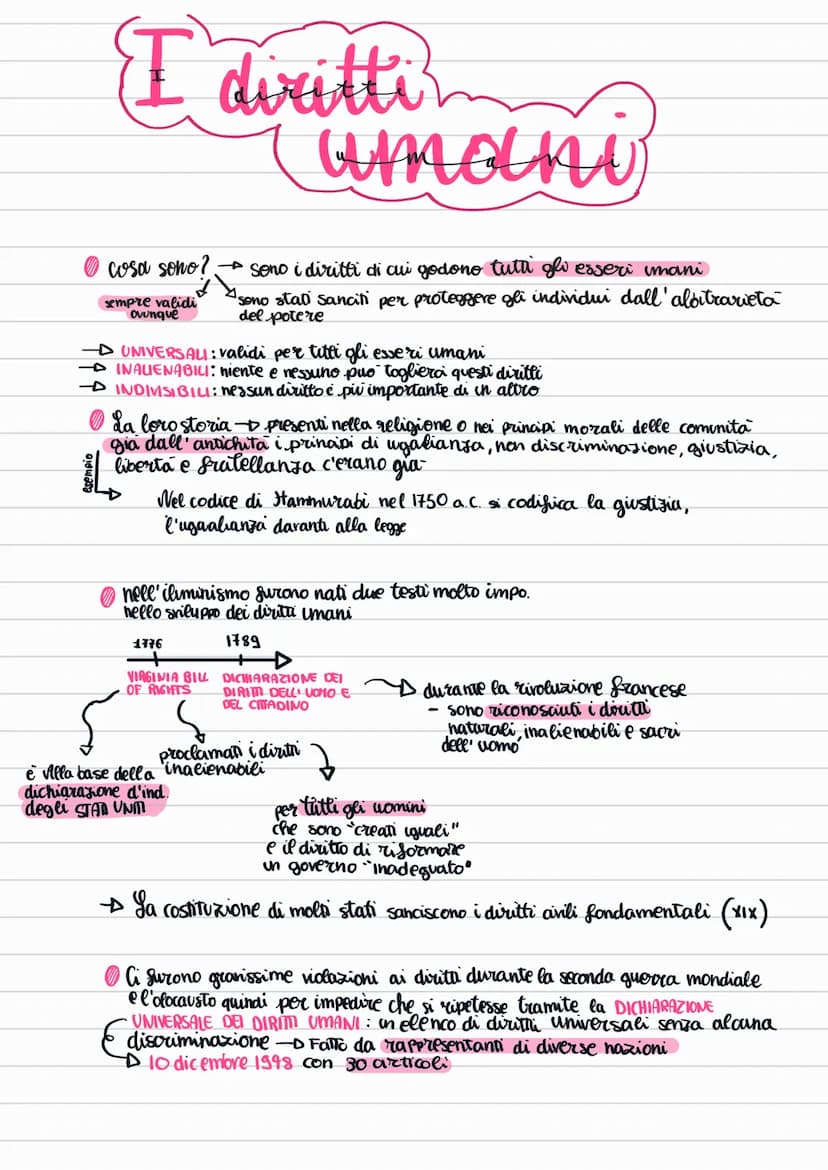 I diritti
umani
cosa sono? → sono i diritti di cui godono tutti gli esseri umani
sempre validi
ovunque
sono stati sanciti per proteggere gli individui dall'albitrarietà
del potere
→ UNIVERSALI: validi per tutti gli esseri umani
→ INALIENABILI: niente e nessuno può toglierci questi diritti
→ INDIVISIBILI: nessun diritto è più importante di un altro
La loro storia → presenti nella religione o nei principi morali delle comunità
già dall'antichità i principi di uguglianza, non discriminazione, giustizia,
libertà e fratellanza c'erano già
esempio
Nel codice di Hammurabi nel 1750 a.C. si codifica la giustizia,
l'uguaglianza davanti alla legge
nell'illuminismo furono nati due testi molto impo.
nello sviluppo dei diritti umani
1776
1789
VIRGINIA BILL
OF RIGHTS
DICHIARAZIONE DEI
DIRITTI DELL'UOMO E
DEL CITTADINO
→ durante la rivoluzione francese
- sono riconosciuti i diritti
naturali, inalienabili e sacri
dell'uomo
proclamati i diritti
inalienabili
è alla base della
dichiarazione d'ind.
degli STATI UNITI
per tutti gli uomini
che sono "creati uguali"
e il diritto di riformare
un governo "inadeguato"
→ La costituzione di molti stati sanciscono i diritti civili fondamentali (XIX)
Ci furono gravissime violazioni ai diritti durante la seconda guerra mondiale
e l'olocausto quindi per impedire che si ripetesse tramite la DICHIARAZIONE
UNIVERSALE DEI DIRITTI UMANI: un elenco di diritti universali senza alcuna
discriminazione → Fatto da rappresentanti di diverse nazioni
→ 10 dicembre 1948 con 30 articoli